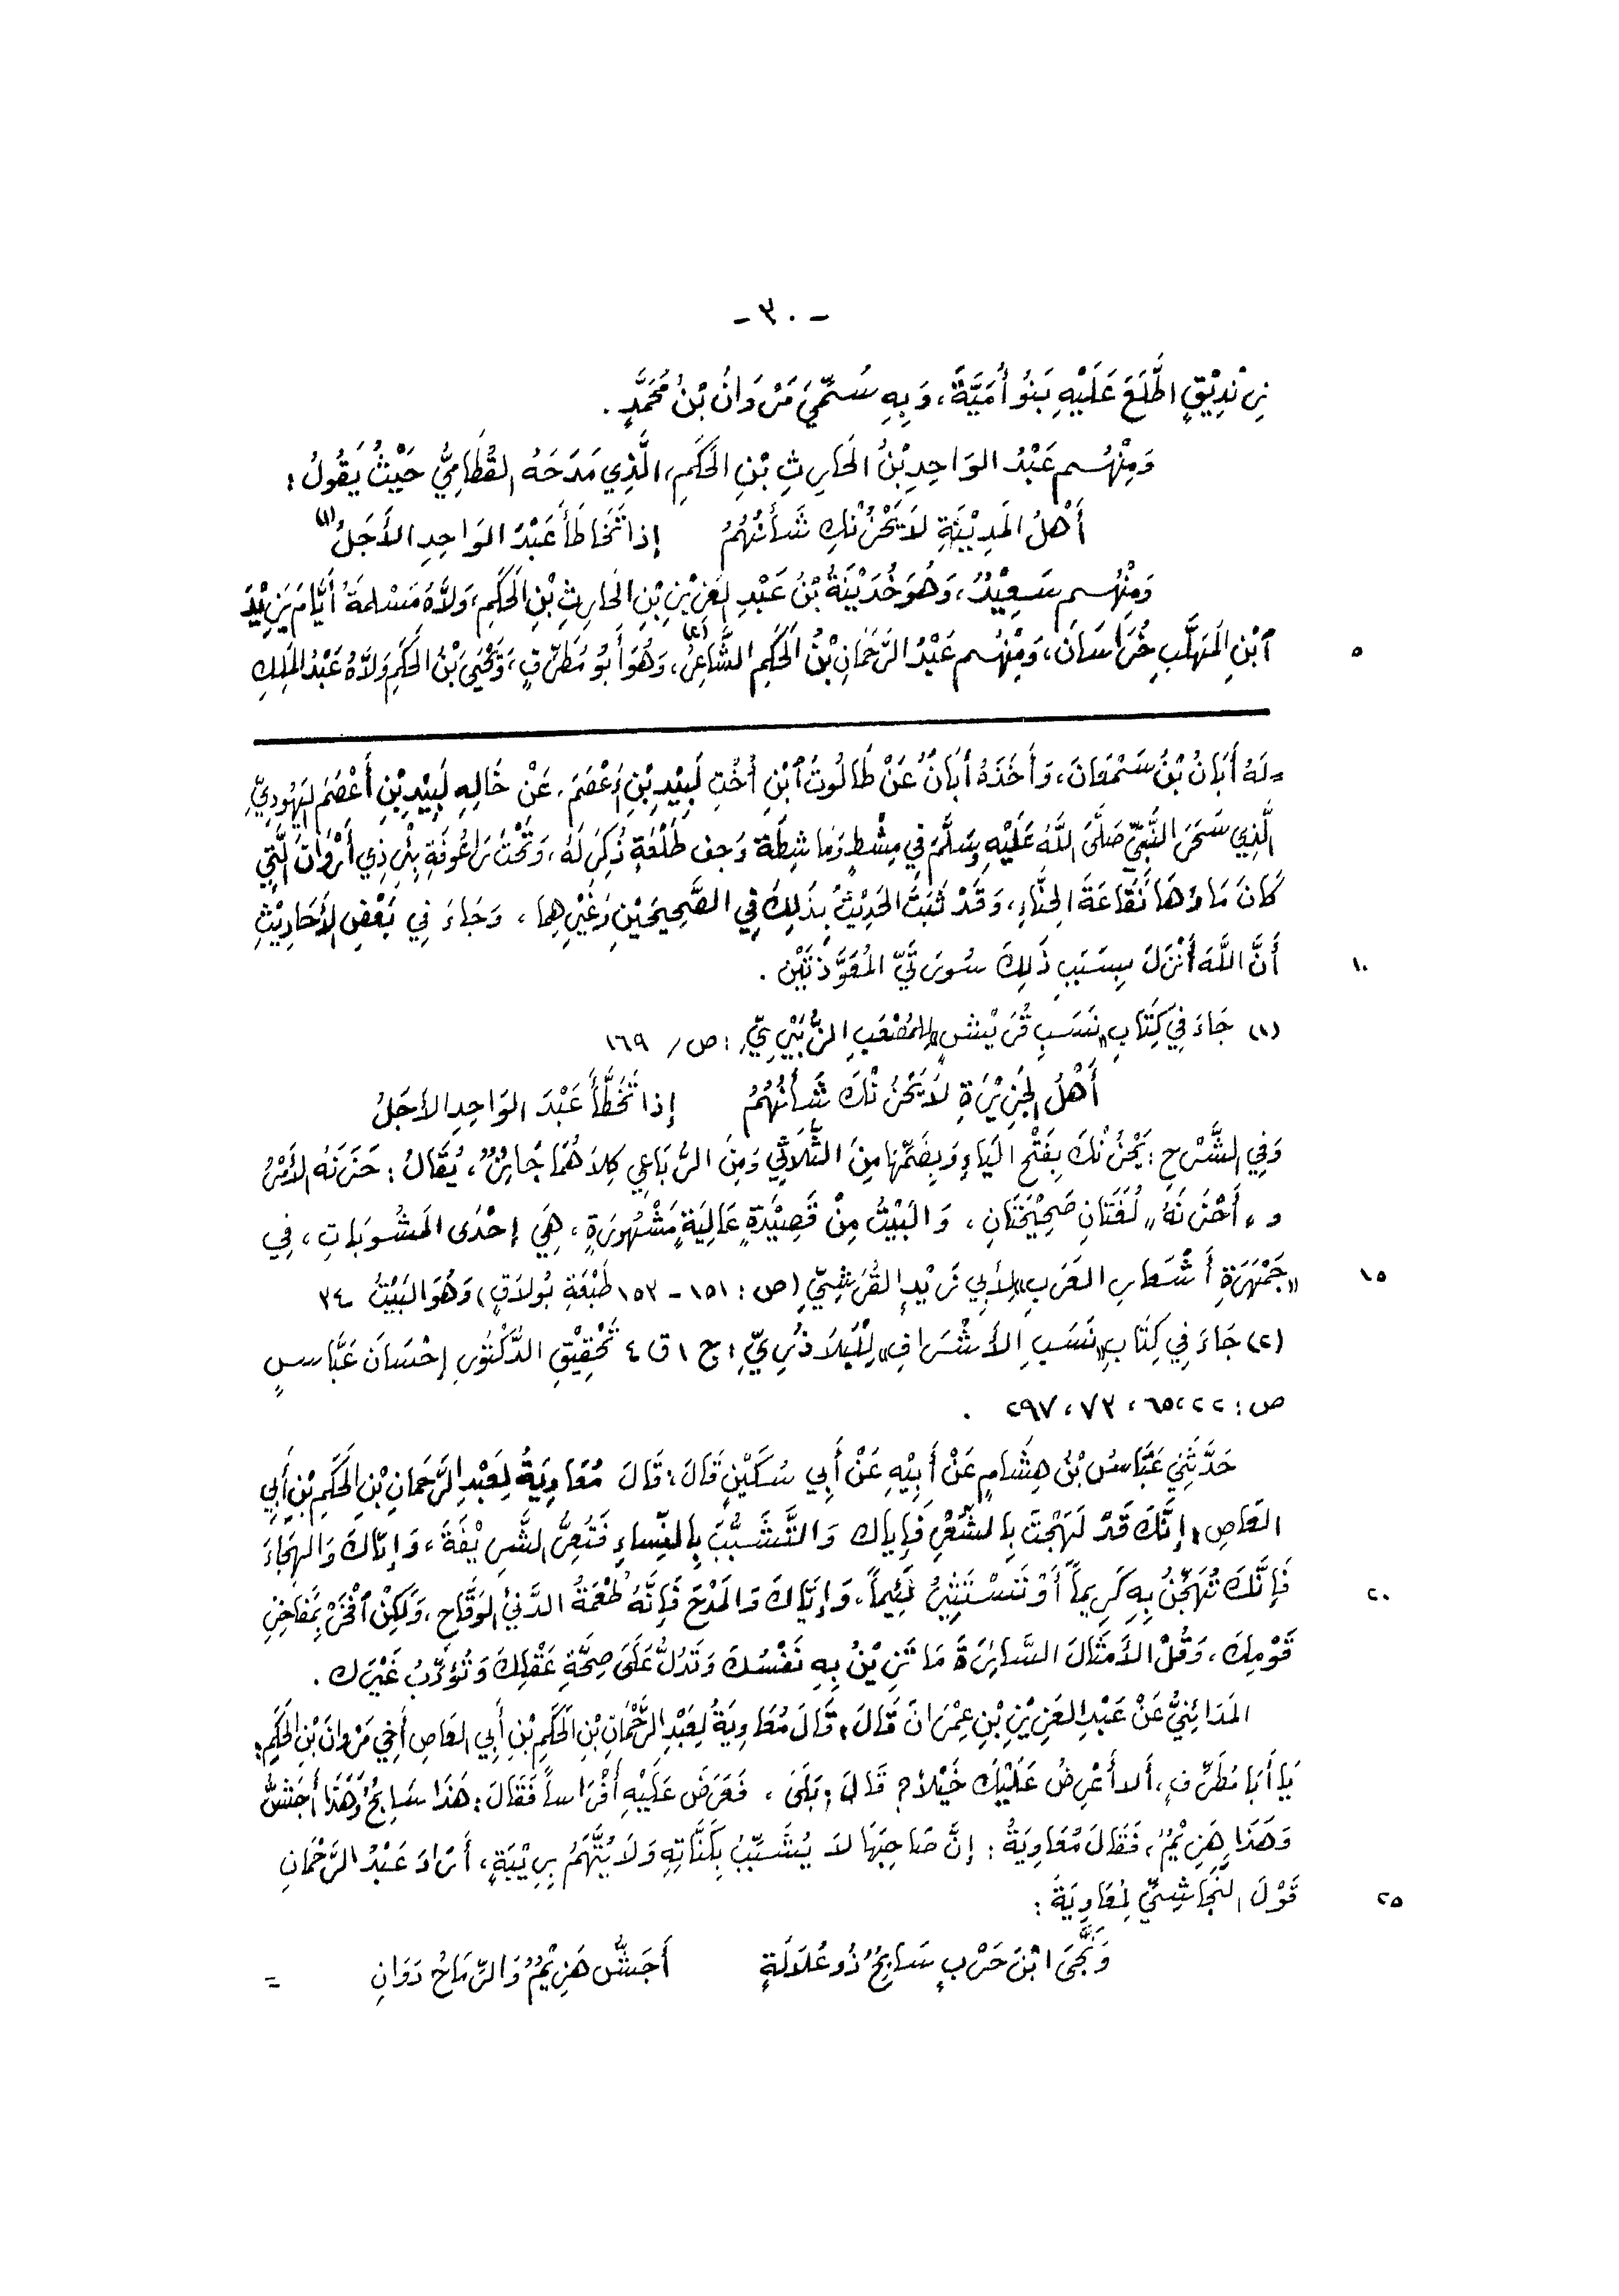 - ٣٠ -
زِنْدِيْقٍ اطَّلَعَ عَلَيْهِ بَنُو أُمَيَّةَ، وَبِهِ سُمِّيَ مَرْوَانُ بْنُ مُحَمَّدٍ.
وَمِنْهُم عَبْدُ الوَاحِدِ بْنُ الحَارِثِ بْنِ الحَكَمِ، الَّذِي مَدَحَهُ القُطَامِيُّ حَيْثُ يَقُولُ:
أَهْلُ المَدِيْنَةِ لَا يَحْزُنْكِ شَأْنُهُمُ إِذَا تَخَاطَأَ عَبْدَ الوَاحِدِ الأَجَلُ (١)
وَمِنْهُم سَعِيْدٌ، وَهُوَ خُدَيْنَةُ بْنُ عَبْدِ العَزِيْزِ بْنِ الحَارِثِ بْنِ الحَكَمِ، وَلَّاهُ مَسْلَمَةُ أَيَّامَ يَزِيْدَ
ٱبْنِ المُهَلَّبِ خُرَاسَانَ، وَمِنْهُم عَبْدُ الرَّحْمَانِ بْنُ الحَكَمِ الشَّاعِرُ (٢)، وَهُوَ أَبُو مُطَرِّفٍ، وَيَحْيَى بْنُ الحَكَمِ وَلَّاهُ عَبْدُ المَلِكِ ٥
= لَهُ أَبَانُ بْنُ سَمْعَانَ، وَأَخَذَهُ أَبَانُ عَنْ طَالُوتَ ٱبْنِ أُخْتِ لَبِيْدِ بْنِ أَعْصَمَ، عَنْ خَالِهِ لَبِيْدِ بْنِ أَعْصَمَ اليَهُودِيِّ
الَّذِي سَحَرَ النَّبِيَّ صَلَّى اللَّهُ عَلَيْهِ وَسَلَّمَ فِي مِشْطٍ وَمَاشِطَةٍ وَجف طَلْعَةٍ ذُكِرَ لَهُ، وَتَحْتَ رَاعُوفَةِ بِئْرِ ذِي أَرْوَانَ الَّتِي
كَانَ مَاؤُهَا نُقَاعَةَ الحِنَّاءِ، وَقَدْ ثَبَتَ الحَدِيْثُ بِذَلِكَ فِي الصَّحِيحَيْنِ وَغَيْرِهِمَا، وَجَاءَ فِي بَعْضِ الأَحَادِيْثِ
أَنَّ اللَّهَ أَنْزَلَ بِسَبَبِ ذَلِكَ سُورَتَيِّ المُعَوَّذَتَيْنِ. ١٠
(١) جَاءَ فِي كِتَابِ «نَسَبِ قُرَيْشٍ» لِلمُصْعَبِ الزُّبَيْرِيِّ: ص/ ١٦٩
أَهْلُ الجَزِيْرَةِ لَا يَحْزُنْكَ شَأْنُهُمُ إِذَا تَخَطَّأَ عَبْدَ الوَاحِدِ الأَجَلُ
وَفِي الشَّرْحِ: يَحْزُنْكَ بِفَتْحِ اليَاءِ وَبِضَمِّهَا مِنَ الثُّلَاثِي وَمِنَ الرُّبَاعِي كِلَاهُمَا جَائِزٌ، يُقَالُ: حَزَنَهُ الأَمْرُ
و «أَحْزَنَهُ» لُغَتَانِ صَحِيْحَتَانِ، وَالبَيْتُ مِنْ قَصِيْدَةٍ عَالِيَةٍ مَشْهُورَةٍ، هِيَ إِحْدَى المَشُوبَاتِ، فِي
«جَمْهَرَةِ أَشْعَارِ العَرَبِ» لأَبِي زَيْدٍ القُرَشِيِّ (ص: ١٥١ - ١٥٣ طَبْعَةِ بُولَاقٍ) وَهُوَ البَيْتُ ٣٤ ١٥
(٢) جَاءَ فِي كِتَابِ «نَسَبِ الأَشْرَافِ» لِلْبَلَاذُرِيِّ: ج ١ ق ٤ تَحْقِيْقِ الدُّكْتُورِ إِحْسَانَ عَبَّاسٍ
ص: ٢٢، ٦٥، ٧٣، ٢٩٧ .
حَدَّثَنِي عَبَّاسُ بْنُ هِشَامٍ عَنْ أَبِيْهِ عَنْ أَبِي سُكَيْنٍ قَالَ: قَالَ مُعَاوِيَةُ لِعَبْدِ الرَّحْمَانِ بْنِ الحَكَمِ بْنِ أَبِي
العَاصِ: إِنَّكَ قَدْ لَهِجْتَ بِالشِّعْرِ فَإِيَاكَ وَالتَّشَبُّبَ بِالنِّسَاءِ فَتَعِرُّ الشَّرِيْفَةَ، وَإِيَّاكَ وَالهِجَاءَ
فَإِنَّكَ تُهَجِّنُ بِهِ كَرِيماً أَوْ تَسْتَثِيْرُ لَئِيماً، وَإِيَّاكَ وَالمَدْحَ فَإِنَّهُ طُعْمَةُ الدَّنِيْءِ الوَقَّاحِ، وَلَكِنْ ٱفْخَرْ بِمَفَاخِرِ ٢٠
قَوْمِكَ، وَقُلْ الأَمْثَالَ السَّائِرَةَ مَا تَزِيْنُ بِهِ نَفْسَكَ وَتَدُلُّ عَلَى صِحَّةِ عَقْلِكَ وَتُؤَدِّبُ غَيْرَكَ.
المَدَائِنِيُّ عَنْ عَبْدِ العَزِيْزِ بْنِ عِمْرَانَ قَالَ: قَالَ مُعَاوِيَةُ لِعَبْدِ الرَّحْمَانِ بْنِ الحَكَمِ بْنِ أَبِي العَاصِ أَخِي مَرْوَانَ بْنِ الحَكَمِ:
يَا أَبَا مُطَرِّفٍ، أَلا أَعْرِضُ عَلَيْكَ خَيْلاً؟ قَالَ: بَلَى، فَعَرَضَ عَلَيْهِ أَفْرَاساً فَقَالَ: هَذَا سَابِحٌ وَهَذَا أَجَشُّ
وَهَذَا هَزِيْمٌ، فَقَالَ مُعَاوِيَةُ: إِنَّ صَاحِبَهَا لَا يُشَبِّبُ بِكَنَّاتِهِ وَلَا يُتَّهَمُ بِرِيْبَةٍ، أَرَادَ عَبْدُ الرَّحْمَانِ
قَوْلَ النَّجَاشِيِّ لِمُعَاوِيَةَ: ٢٥
وَنَجَّى ابْنَ حَرْبٍ سَابِحٌ ذُو عُلَالَةٍ أَجَشُّ هَزِيْمٌ وَالرِّمَاحُ دَوَانِ =